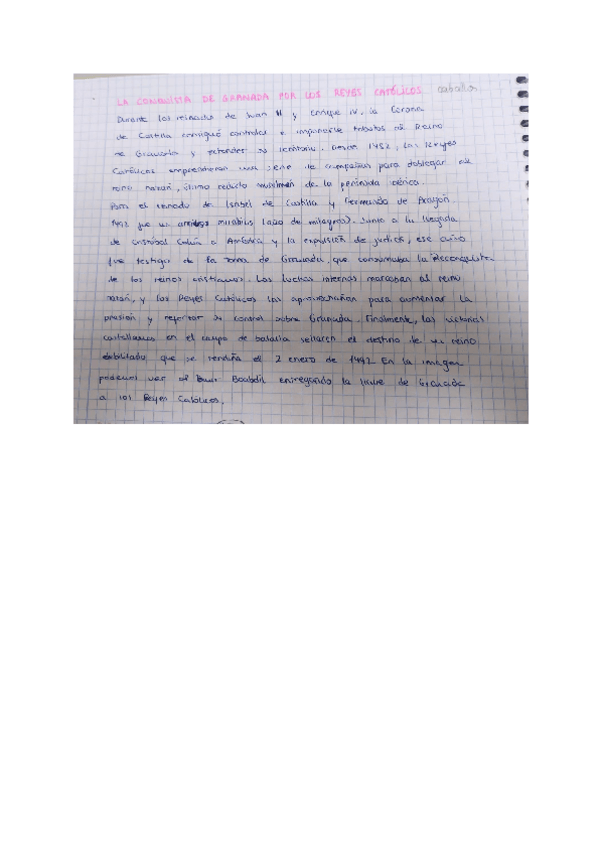 LA CONQUISTA DE GRANADA POR LOS REYES CATÓLICOS caballa
Durante los reinados de Juan II y Enrique IV, la Corona
de Castilla consiguió controlar e imponerse tributos al Reino
de Granada y extender su territorio. Desde 1482, los Reyes
Católicos emprendieron una serie de campañas para doblegar al
reino nazarí, último reducto musulmán de la península ibérica.
Para el reinado de Isabel de Castilla y Fernando de Aragón
1492 fue un mirabilis (año de milagros). Junto a la llegada
de Cristobal Colón a América y la expulsión de judíos, ese año
fue testigo de la toma de Granada, que consumaba la Reconquista
de los reinos cristianos. Las luchas internas marcaban al reino
nazarí, y los Reyes Católicos las aprovechaban para aumentar la
presión y reforzar su control sobre Granada. Finalmente, las victorias
castellanas en el campo de batalla sellaron el destino de un reino
debilitado, que se rendiría el 2 enero de 1492. En la imagen
podemos ver al Boabdil entregando la llave de Granada
a los Reyes Católicos.